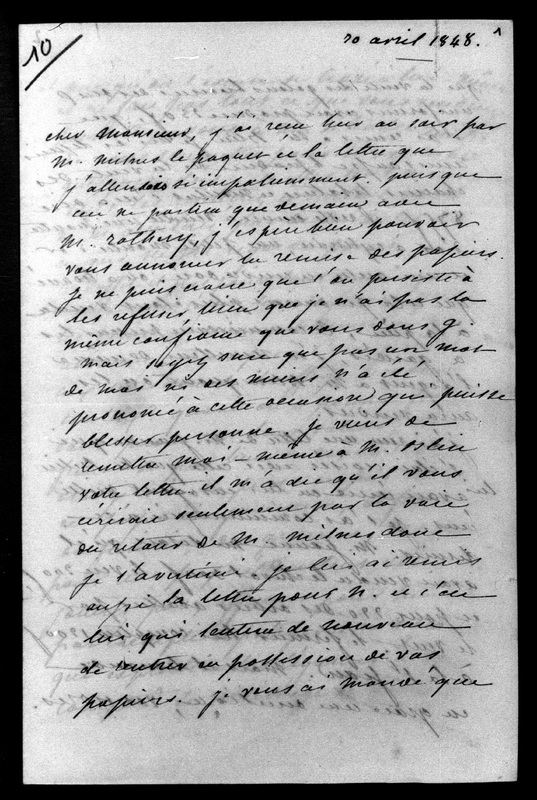 10
20 avril 1848.
cher Monsieur, j'ai recu hier au soir par
M. milnes le paquet et la lettre que
j'attendais si impatiemment. puisque
ceci ne partira que demain avec
M. rothery, j'espère bien pouvoir
vous annoncer la remise des papiers.
Je ne puis croire que l'on persiste à
les refuser, bien que je n'ai pas la
même confiance que vous dans g.
mais soyez sure que pas un mot
de moi ni des miens n'a été
prononcé à cette occasion qui puisse
blesser personne. je viens de
remettre moi-même à M.
votre lettre il m'a dit qu'il vous
écrirait seulement par la voie
du retour de M. milnes donc
je l'avertirai. je lui ai remis
aussi la lettre pour n. et c'est
lui qui tentera de nouveau
de rentrer en possession de vos
papiers. je vous ai mandé que